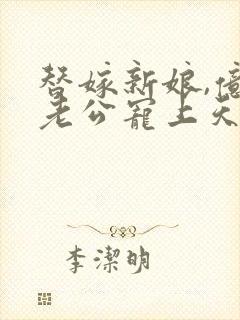 替嫁新娘,億
老公寵上天
李潔明